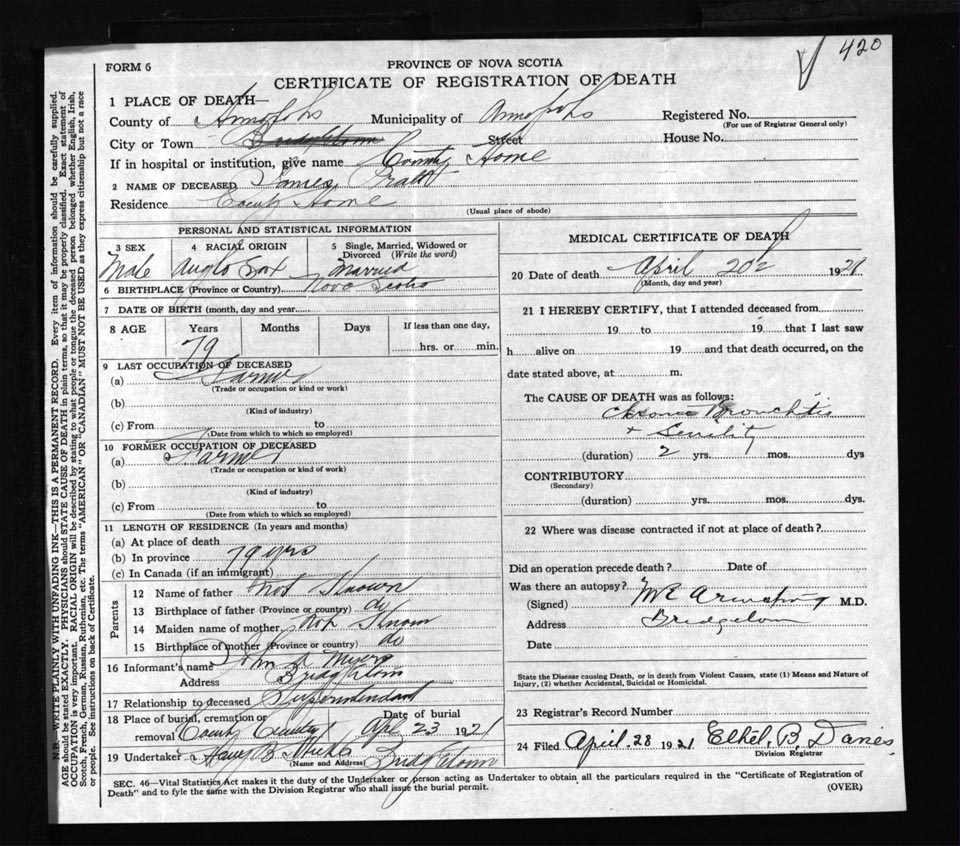 420
FORM 6
PROVINCE OF NOVA SCOTIA
CERTIFICATE OF REGISTRATION OF DEATH
1 PLACE OF DEATH—
County of Annapolis Municipality of Annapolis Registered No.
(For use of Registrar General only)
City or Town Bridgetown Street House No.
If in hospital or institution, give name County Home
2 NAME OF DECEASED James Pratt
Residence County Home
(Usual place of abode)
PERSONAL AND STATISTICAL INFORMATION
3 SEX 4 RACIAL ORIGIN 5 Single, Married, Widowed or Divorced (Write the word)
Male Anglo Sax Married
6 BIRTHPLACE (Province or Country) Nova Scotia
7 DATE OF BIRTH (month, day and year)
8 AGE Years Months Days If less than one day,
79 hrs. or min.
9 LAST OCCUPATION OF DECEASED
(a) Farmer
(Trade or occupation or kind or work)
(b)
(Kind of industry)
(c) From to
(Date from which to which so employed)
10 FORMER OCCUPATION OF DECEASED
(a) Farmer
(Trade or occupation or kind or work)
(b)
(Kind of industry)
(c) From to
(Date from which to which so employed)
11 LENGTH OF RESIDENCE (In years and months)
(a) At place of death
(b) In province 79 yrs
(c) In Canada (if an immigrant)
Parents
12 Name of father Not Known
13 Birthplace of father (Province or country) do
14 Maiden name of mother Not Known
15 Birthplace of mother (Province or country) do
16 Informant's name John H Myers
Address Bridgetown
17 Relationship to deceased Superintendant
18 Place of burial, cremation or Date of burial
removal County Cemetery Apr 23 1921
19 Undertaker B Bridgetown
(Name and Address)
MEDICAL CERTIFICATE OF DEATH
20 Date of death April 20 1921
(Month, day and year)
21 I HEREBY CERTIFY, that I attended deceased from
19 to 19 that I last saw
h alive on 19 and that death occurred, on the
date stated above, at m.
The CAUSE OF DEATH was as follows:
Chronic Bronchitis
+ Senility
(duration) 2 yrs. mos. dys
CONTRIBUTORY
(Secondary)
(duration) yrs. mos. dys.
22 Where was disease contracted if not at place of death?
Did an operation precede death? Date of
Was there an autopsy?
(Signed) Armstrong M.D.
Address Bridgetown
Date
State the Disease causing Death, or in death from Violent Causes, state (1) Means and Nature of
Injury, (2) whether Accidental, Suicidal or Homicidal.
23 Registrar's Record Number
24 Filed April 28 1921 Ethel. B. Danes
Division Registrar
SEC. 46—Vital Statistics Act makes it the duty of the Undertaker or person acting as Undertaker to obtain all the particulars required in the "Certificate of Registration of
Death" and to fyle the same with the Division Registrar who shall issue the burial permit.
(OVER)
N.B.—WRITE PLAINLY WITH UNFADING INK—THIS IS A PERMANENT RECORD. Every item of information should be carefully supplied.
AGE should be stated EXACTLY. PHYSICIANS should STATE CAUSE OF DEATH in plain terms, so that it may be properly classified. Exact statement of
OCCUPATION is very important. RACIAL ORIGIN will be described by stating to what people or tongue the deceased person belonged whether English, Irish,
Scotch, French, German, Russian, Ruthenian, etc. The terms "AMERICAN" or "CANADIAN" MUST NOT BE USED as they express citizenship but not a race
or people. See instructions on back of Certificate.